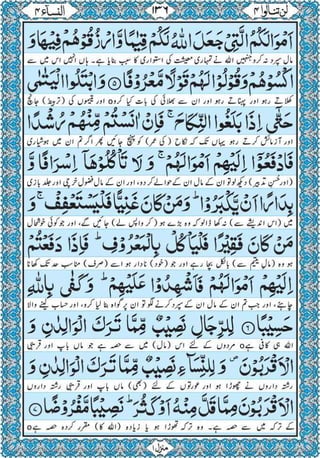 لن تنالوا ٤
١٣٦
النساء ٤
اَمْوَالَكُمُ الَّتِيْ جَعَلَ اللّٰهُ لَكُمْ قِيٰمًا وَّارْزُقُوْهُمْ فِيْهَا وَ
مال سپرد نہ کرو جنہیں اللہ نے تمہاری معیشت کی استواری کا سبب بنایا ہے۔ ہاں انہیں اس میں سے
اكْسُوْهُمْ وَقُوْلُوْا لَهُمْ قَوْلًا مَّعْرُوْفًا ۝٥ وَابْتَلُوا الْيَتٰمٰى
کھلاتے رہو اور پہناتے رہو اور ان سے بھلائی کی بات کیا کرو۝ اور یتیموں کی (تربیۃً) جانچ
حَتّٰۤى اِذَا بَلَغُوا النِّكَاحَ ۚ فَاِنْ اٰنَسْتُمْ مِّنْهُمْ رُشْدًا
اور آزمائش کرتے رہو یہاں تک کہ نکاح (کی عمر) کو پہنچ جائیں پھر اگر تم ان میں ہوشیاری
فَادْفَعُوْۤا اِلَيْهِمْ اَمْوَالَهُمْ ۚ وَ لَا تَاْكُلُوْهَاۤ اِسْرَافًا وَّ
(اور حُسنِ تدبیر) دیکھ لو تو ان کے مال ان کے حوالے کر دو، اور ان کے مال فضول خرچی اور جلد بازی
بِدَارًا اَنْ يَّكْبَرُوْا ؕ وَ مَنْ كَانَ غَنِيًّا فَلْيَسْتَعْفِفْ ۚ وَ
میں (اس اندیشے سے) نہ کھا ڈالو کہ وہ بڑے ہو (کر واپس لے) جائیں گے، اور جو کوئی خوشحال
مَنْ كَانَ فَقِيْرًا فَلْيَاْكُلْ بِالْمَعْرُوْفِ ؕ فَاِذَا دَفَعْتُمْ
ہو وہ (مالِ یتیم سے) بالکل بچا رہے اور جو (خود) نادار ہو اسے (صرف) مناسب حد تک کھانا
اِلَيْهِمْ اَمْوَالَهُمْ فَاَشْهِدُوْا عَلَيْهِمْ ؕ وَ كَفٰى بِاللّٰهِ
چاہئے، اور جب تم ان کے مال ان کے سپرد کرنے لگو تو ان پر گواہ بنا لیا کرو، اور حساب لینے والا
حَسِيْبًا ۝٦ لِلرِّجَالِ نَصِيْبٌ مِّمَّا تَرَكَ الْوَالِدٰنِ وَ
اللہ ہی کافی ہے۝ مردوں کے لئے اس (مال) میں سے حصہ ہے جو ماں باپ اور قریبی
الْاَقْرَبُوْنَ ۪ وَ لِلنِّسَآءِ نَصِيْبٌ مِّمَّا تَرَكَ الْوَالِدٰنِ وَ
رشتہ داروں نے چھوڑا ہو اور عورتوں کے لئے (بھی) ماں باپ اور قریبی رشتہ داروں
الْاَقْرَبُوْنَ مِمَّا قَلَّ مِنْهُ اَوْ كَثُرَ ؕ نَصِيْبًا مَّفْرُوْضًا ۝٧
کے ترکہ میں سے حصہ ہے۔ وہ ترکہ تھوڑا ہو یا زیادہ (اللہ کا) مقرر کردہ حصہ ہے۝
منزل